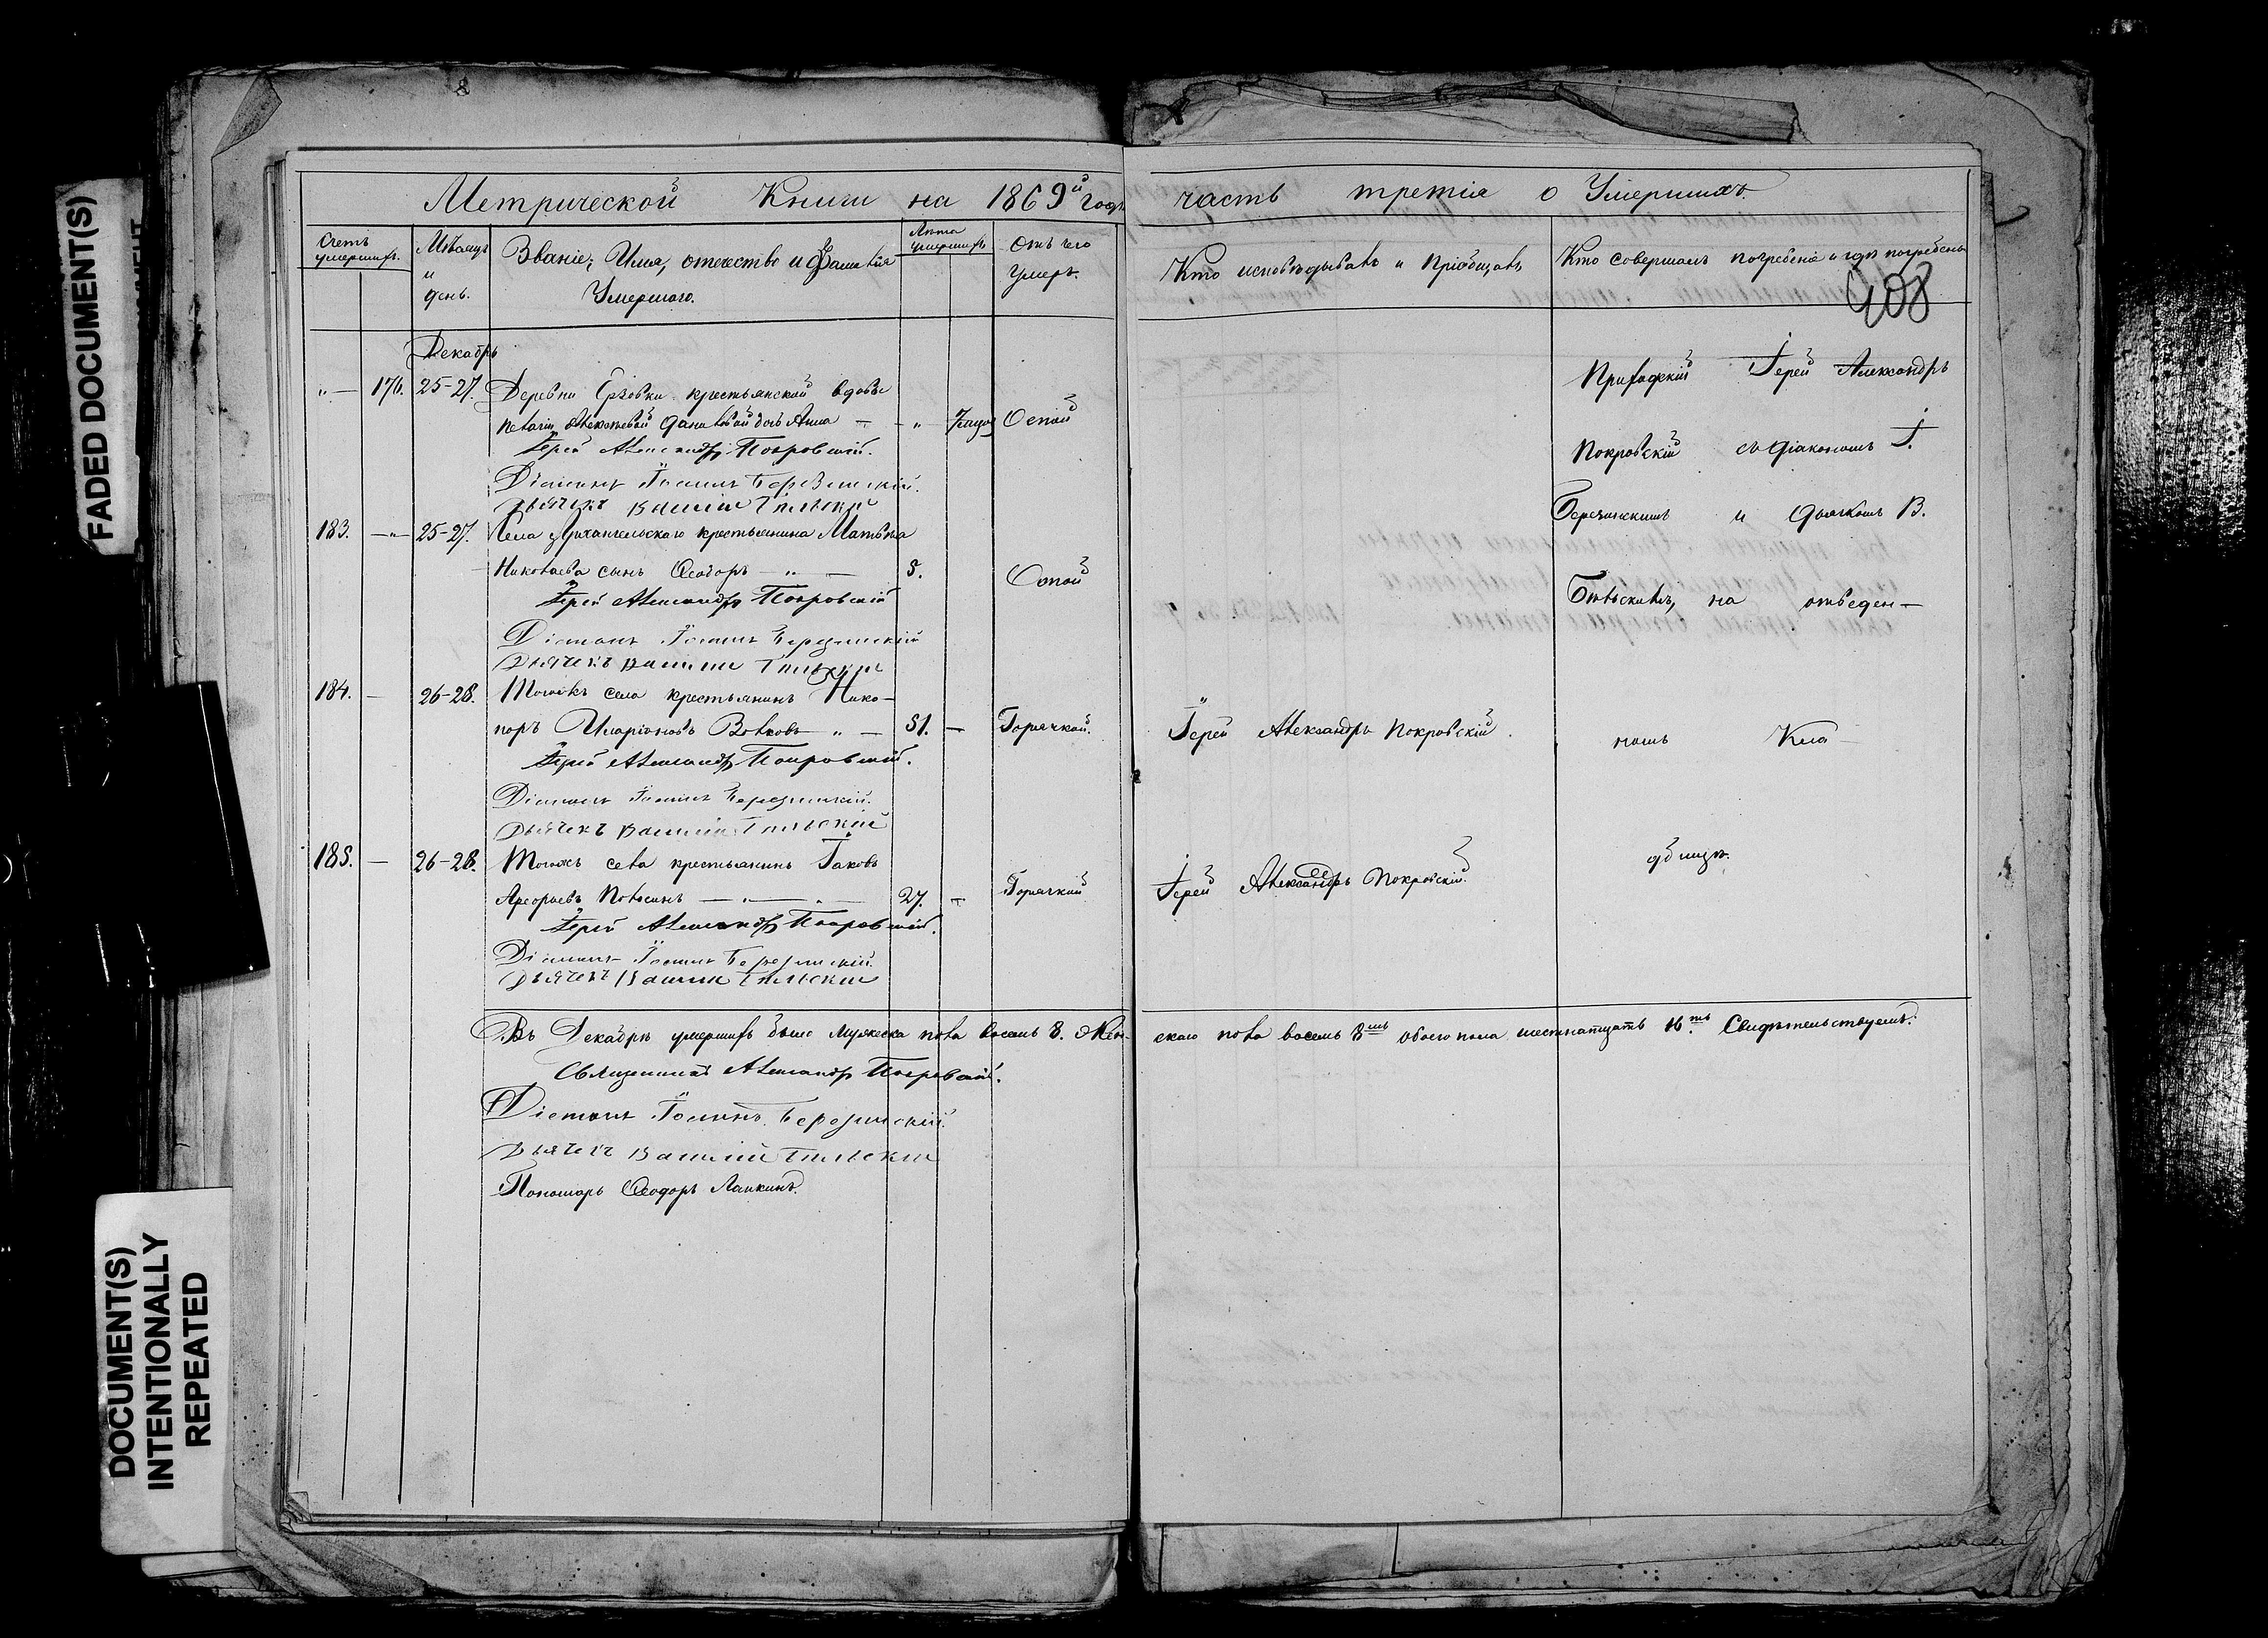 FADED DOCUMENT(S)
DOCUMENT(S)
INTENTIONALLY
REPEATED
Метрической Книги на 1869й годъ
часть третія о Умершихъ.
Счетъ умершихъ.
Мѣсяцъ и день.
Званіе, Имя, отчество и фамилія Умершаго.
Лѣта умершихъ
Отъ чего умеръ.
Кто исповѣдывалъ и пріобщалъ
Кто совершалъ погребеніе и гдѣ погребены
908
Декабрь
" — 176. 25-27. Деревни крестьянской вдовы
Пелагіи дочь Анна — " Оспой
Іерей Александръ Покровскій.
Діаконъ Іоаннъ Березинскій.
Дьячекъ Василій
183. — " — 25-27. Села Архангельскаго крестьянина Матвѣя
Николаева сынъ Ѳеодоръ — " — 5. Оспой
Іерей Александръ Покровскій
Діаконъ Іоаннъ Березинскій
Дьячекъ Василій
184. — 26-28. Тогожъ села крестьянинъ Нико-
норъ Иларіоновъ Волковъ " — 51. — Горячкой.
Іерей Александръ Покровскій.
Діаконъ Іоаннъ Березинскій.
Дьячекъ Василій
185. — 26-28. Тогожъ села крестьянинъ Іаковъ
— " — 27. — Горячкой
Іерей Александръ Покровскій.
Діаконъ Іоаннъ Березинскій.
Дьячекъ Василій
Іерей Александръ Покровскій.
Іерей Александръ Покровскій.
Приходскій Іерей Александръ
Покровскій съ діакономъ І.
Березинскимъ и дьячкомъ В.
на отведен-
номъ Кла-
дбищѣ.
Въ Декабрѣ умершихъ было мужеска пола восемь 8. Жен-
скаго пола восемь 8мь обоего пола шестнатцать 16.ть Свидѣтельствуемъ:
Священникъ Александръ Покровскій.
Діаконъ Іоаннъ Березинскій.
Дьячекъ Василій
Пономарь Ѳеодоръ Лапкинъ.